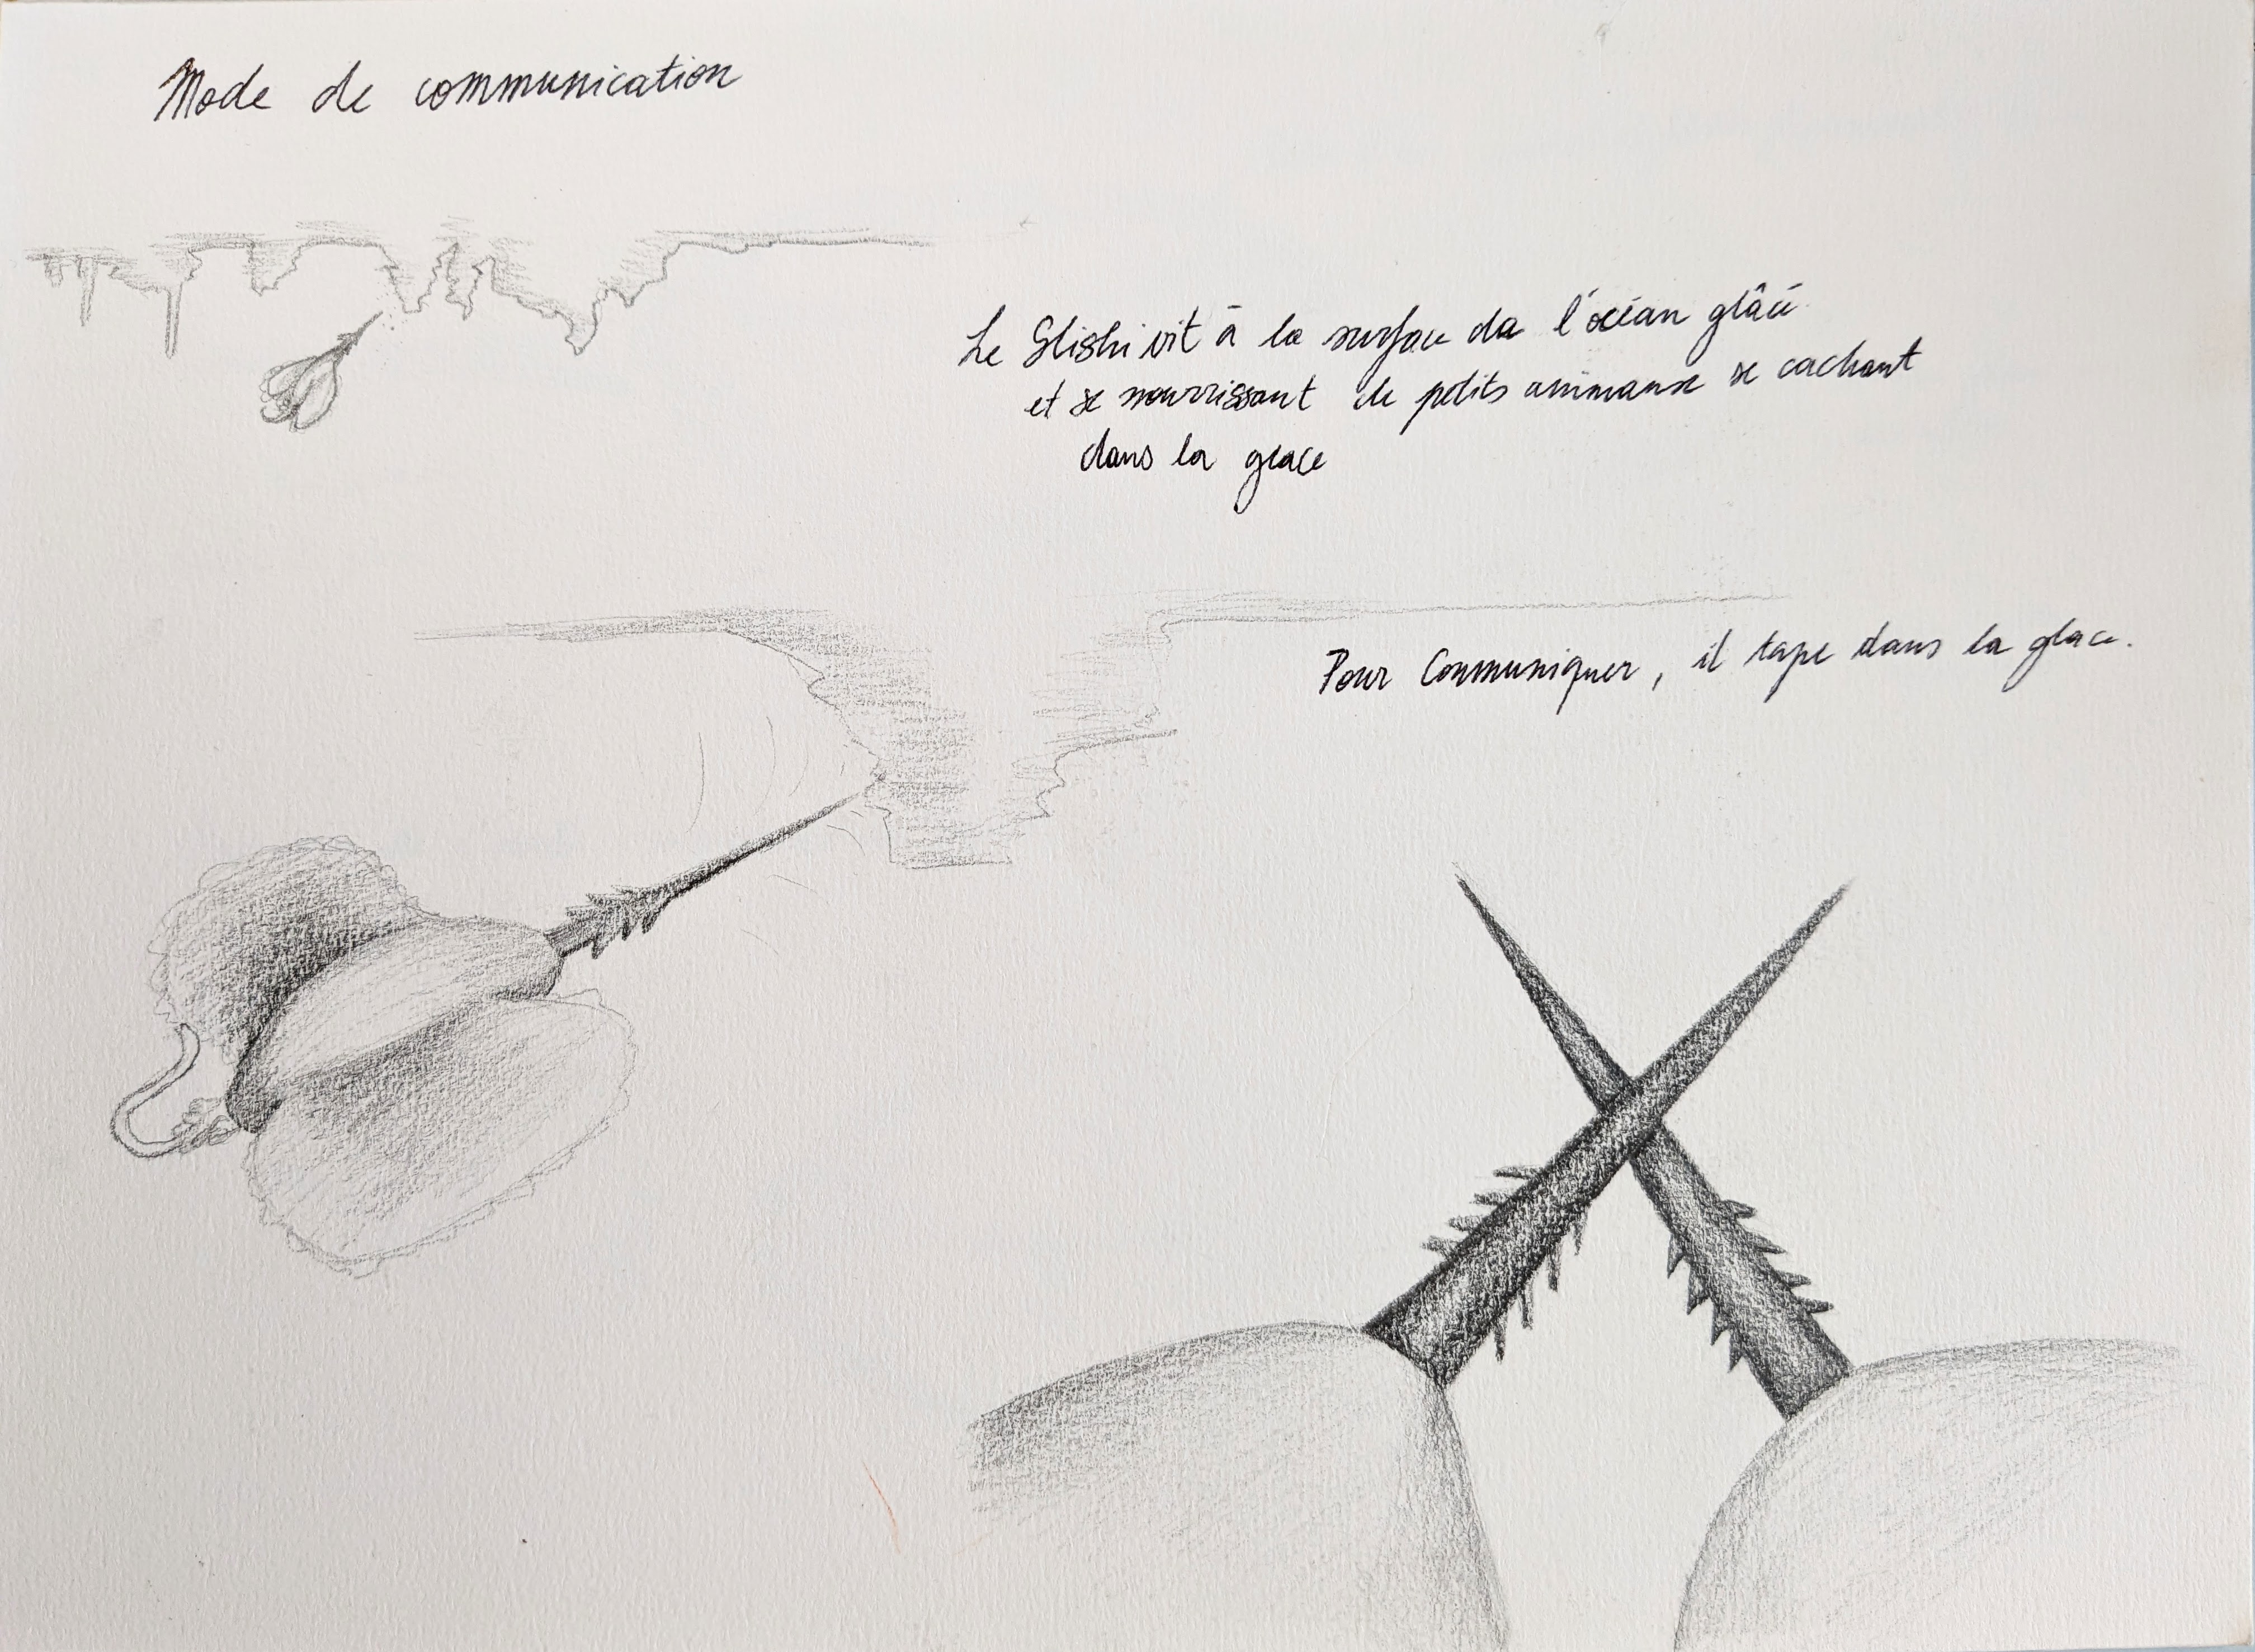 Mode de communication
Le Glishi vit à la surface da l'océan glâcé
et se nourrissant de petits animaux se cachant
dans la glace
Pour Communiquer, il tape dans la glace.